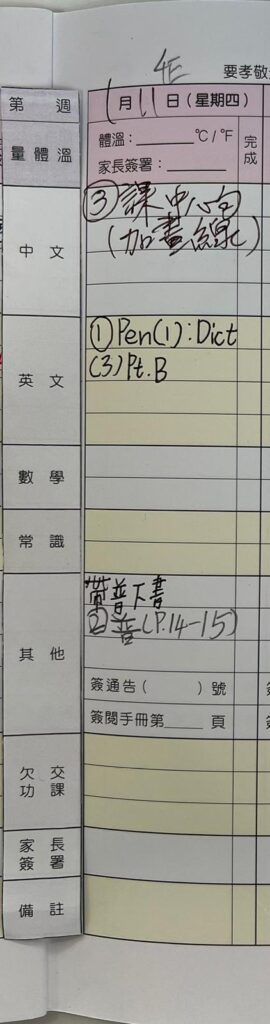 4E
要孝敬
第 週
1月11日(星期四)
量體溫
體溫:______°C/°F
完成
家長簽署:______
中文
③課中心句
(加畫線)
英文
①Pen(1):Dict
(3)Pt.B
數學
常識
其他
帶普下書
②普(P.14-15)
簽通告( )號
簽閱手冊第____頁
欠交功課
家長簽署
備註